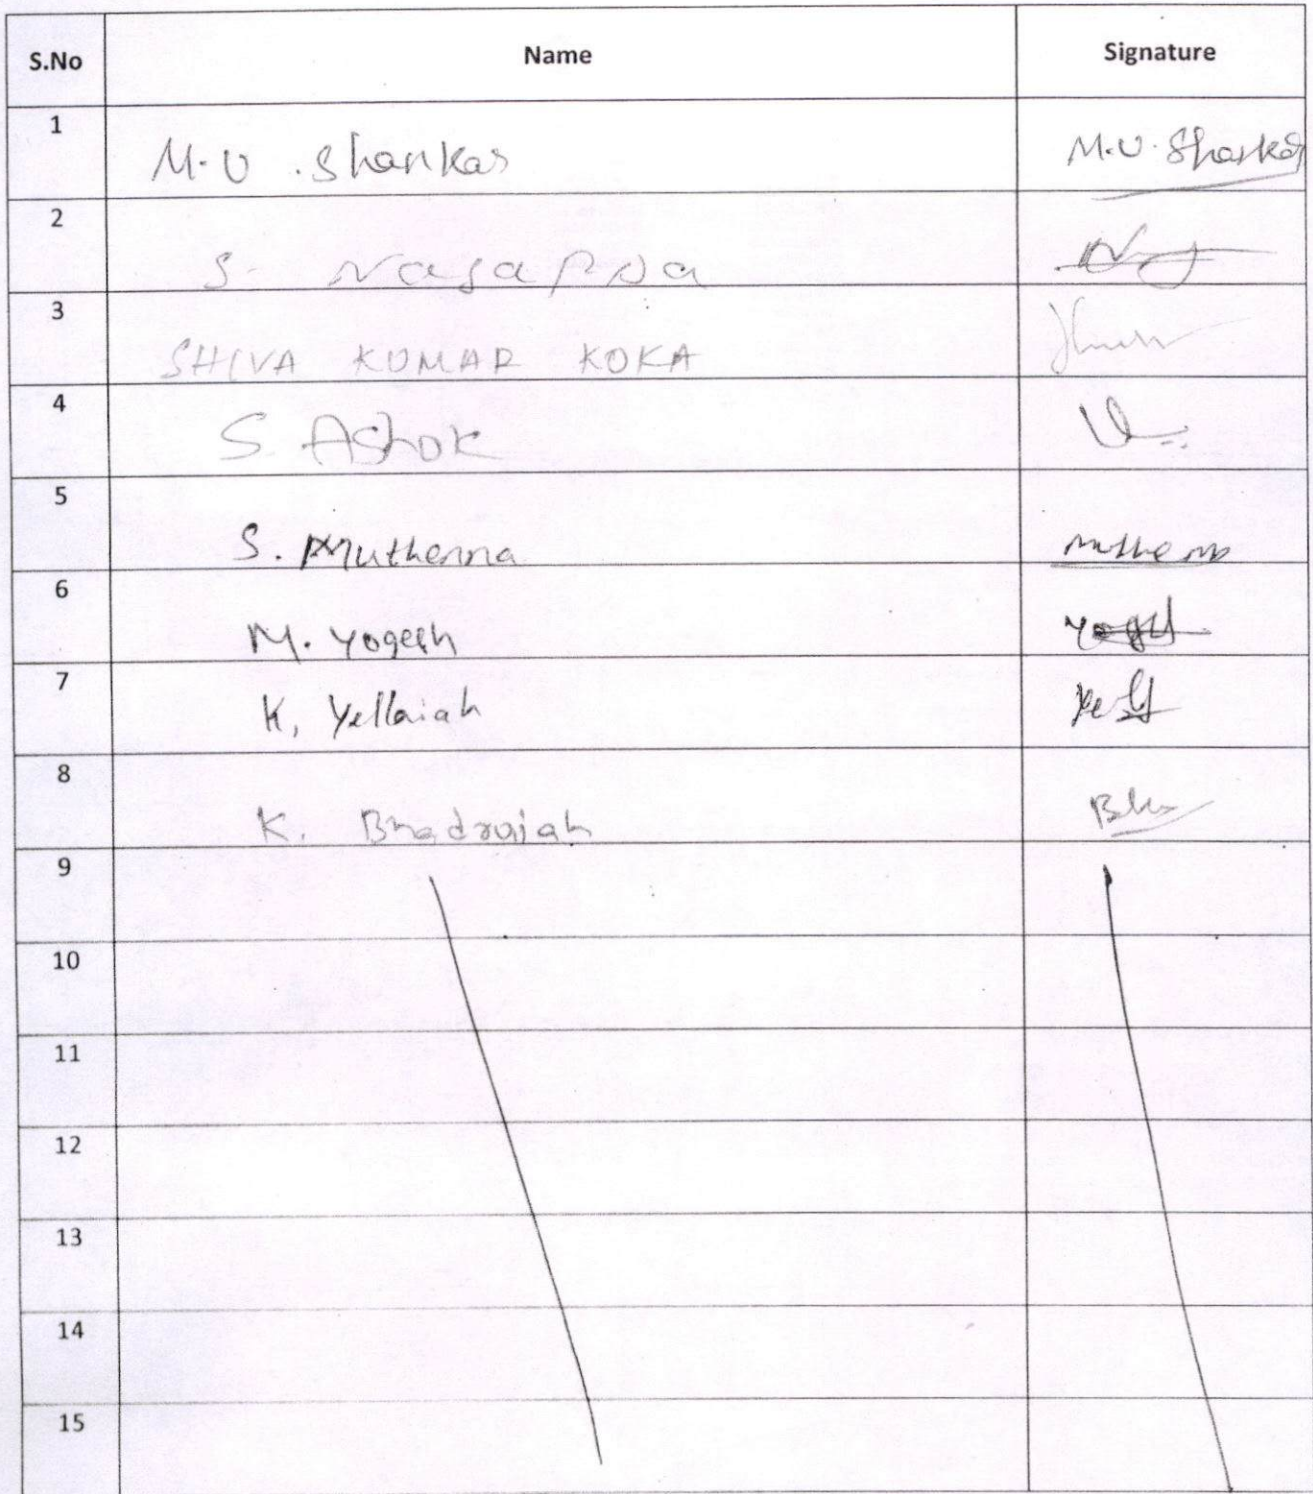 S.No Name Signature
1 M.U. Shankar M.U. Shankar
2 S. Nagappa
3 SHIVA KUMAR KOKA
4 S. Ashok
5 S. Muthenna
6 M. Yogesh
7 K. Yellaiah
8 K. Bhadraiah
9
10
11
12
13
14
15